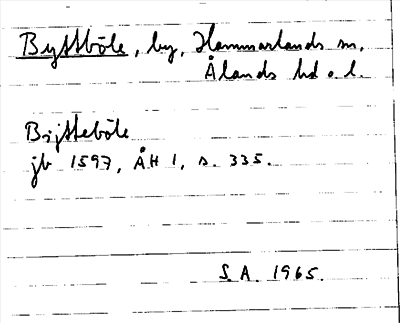 Byttböle, by, Hammarlands sn,
Ålands hd o. l.
Bijtteböle
jb 1597, ÅH 1, s. 335.
S.A. 1965.